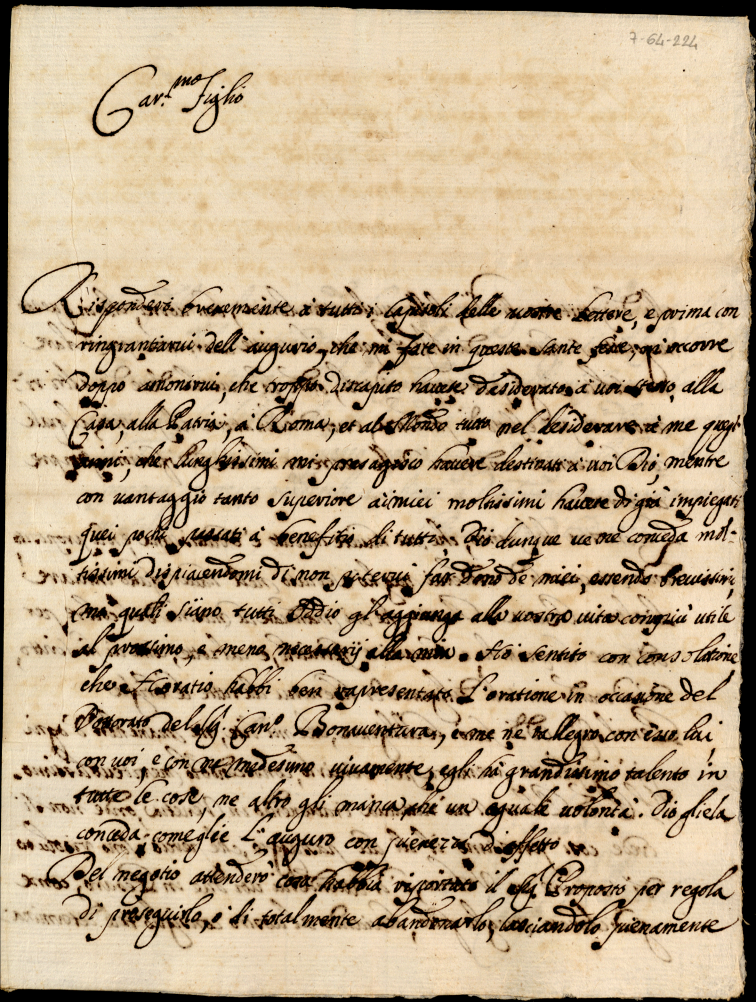 7-64-224
Car.mo Figlio
Risponderò brevemente à tutti i Capitoli delle vostre lettere, e prima con
ringrantiarvi dell'augurio, che mi fate in queste Sante feste, mi occorre
doppo amonirvi, che troppo discapito havete dasiderato à voi stesso, alla
Casa, alla Patria, à Roma, et al Mondo tutto nel desiderare à me quegl'
anni, che lunghissimi havere destinati à voi Dio, mentre
con vantaggio tanto superiore aimiei moltissimi havete di già impiegati
quei pochi passati à benefitio di tutti, Dio dunque ve ne conceda mol-
tissimi dispiacendomi di non potervi far dono de miei, essendo brevissimi,
mà quali siano tutti Iddio gl'aggiunga alla vostra vita com più utile
al prossimo, e meno necessarij alla mia. Hò sentito con consolatione
che Horatio habbi ben rapresentato l'oratione in occasione del
Dottorato del Sig.r Can.co Bonaventura, e me ne rallegro con esso lui,
con voi, e con me medesimo vivamente, egli hà grandissimo talento in
tutte le cose, ne altro gli manca che un eguale volontà. Dio gliela
conceda come glie l'auguro con pienezza di affetto
Del negotio attenderò cosa habbia risportato il Sig.r Proposto per regola
di proseguirlo, ò di totalmente abandonarlo, lasciandolo pienamente